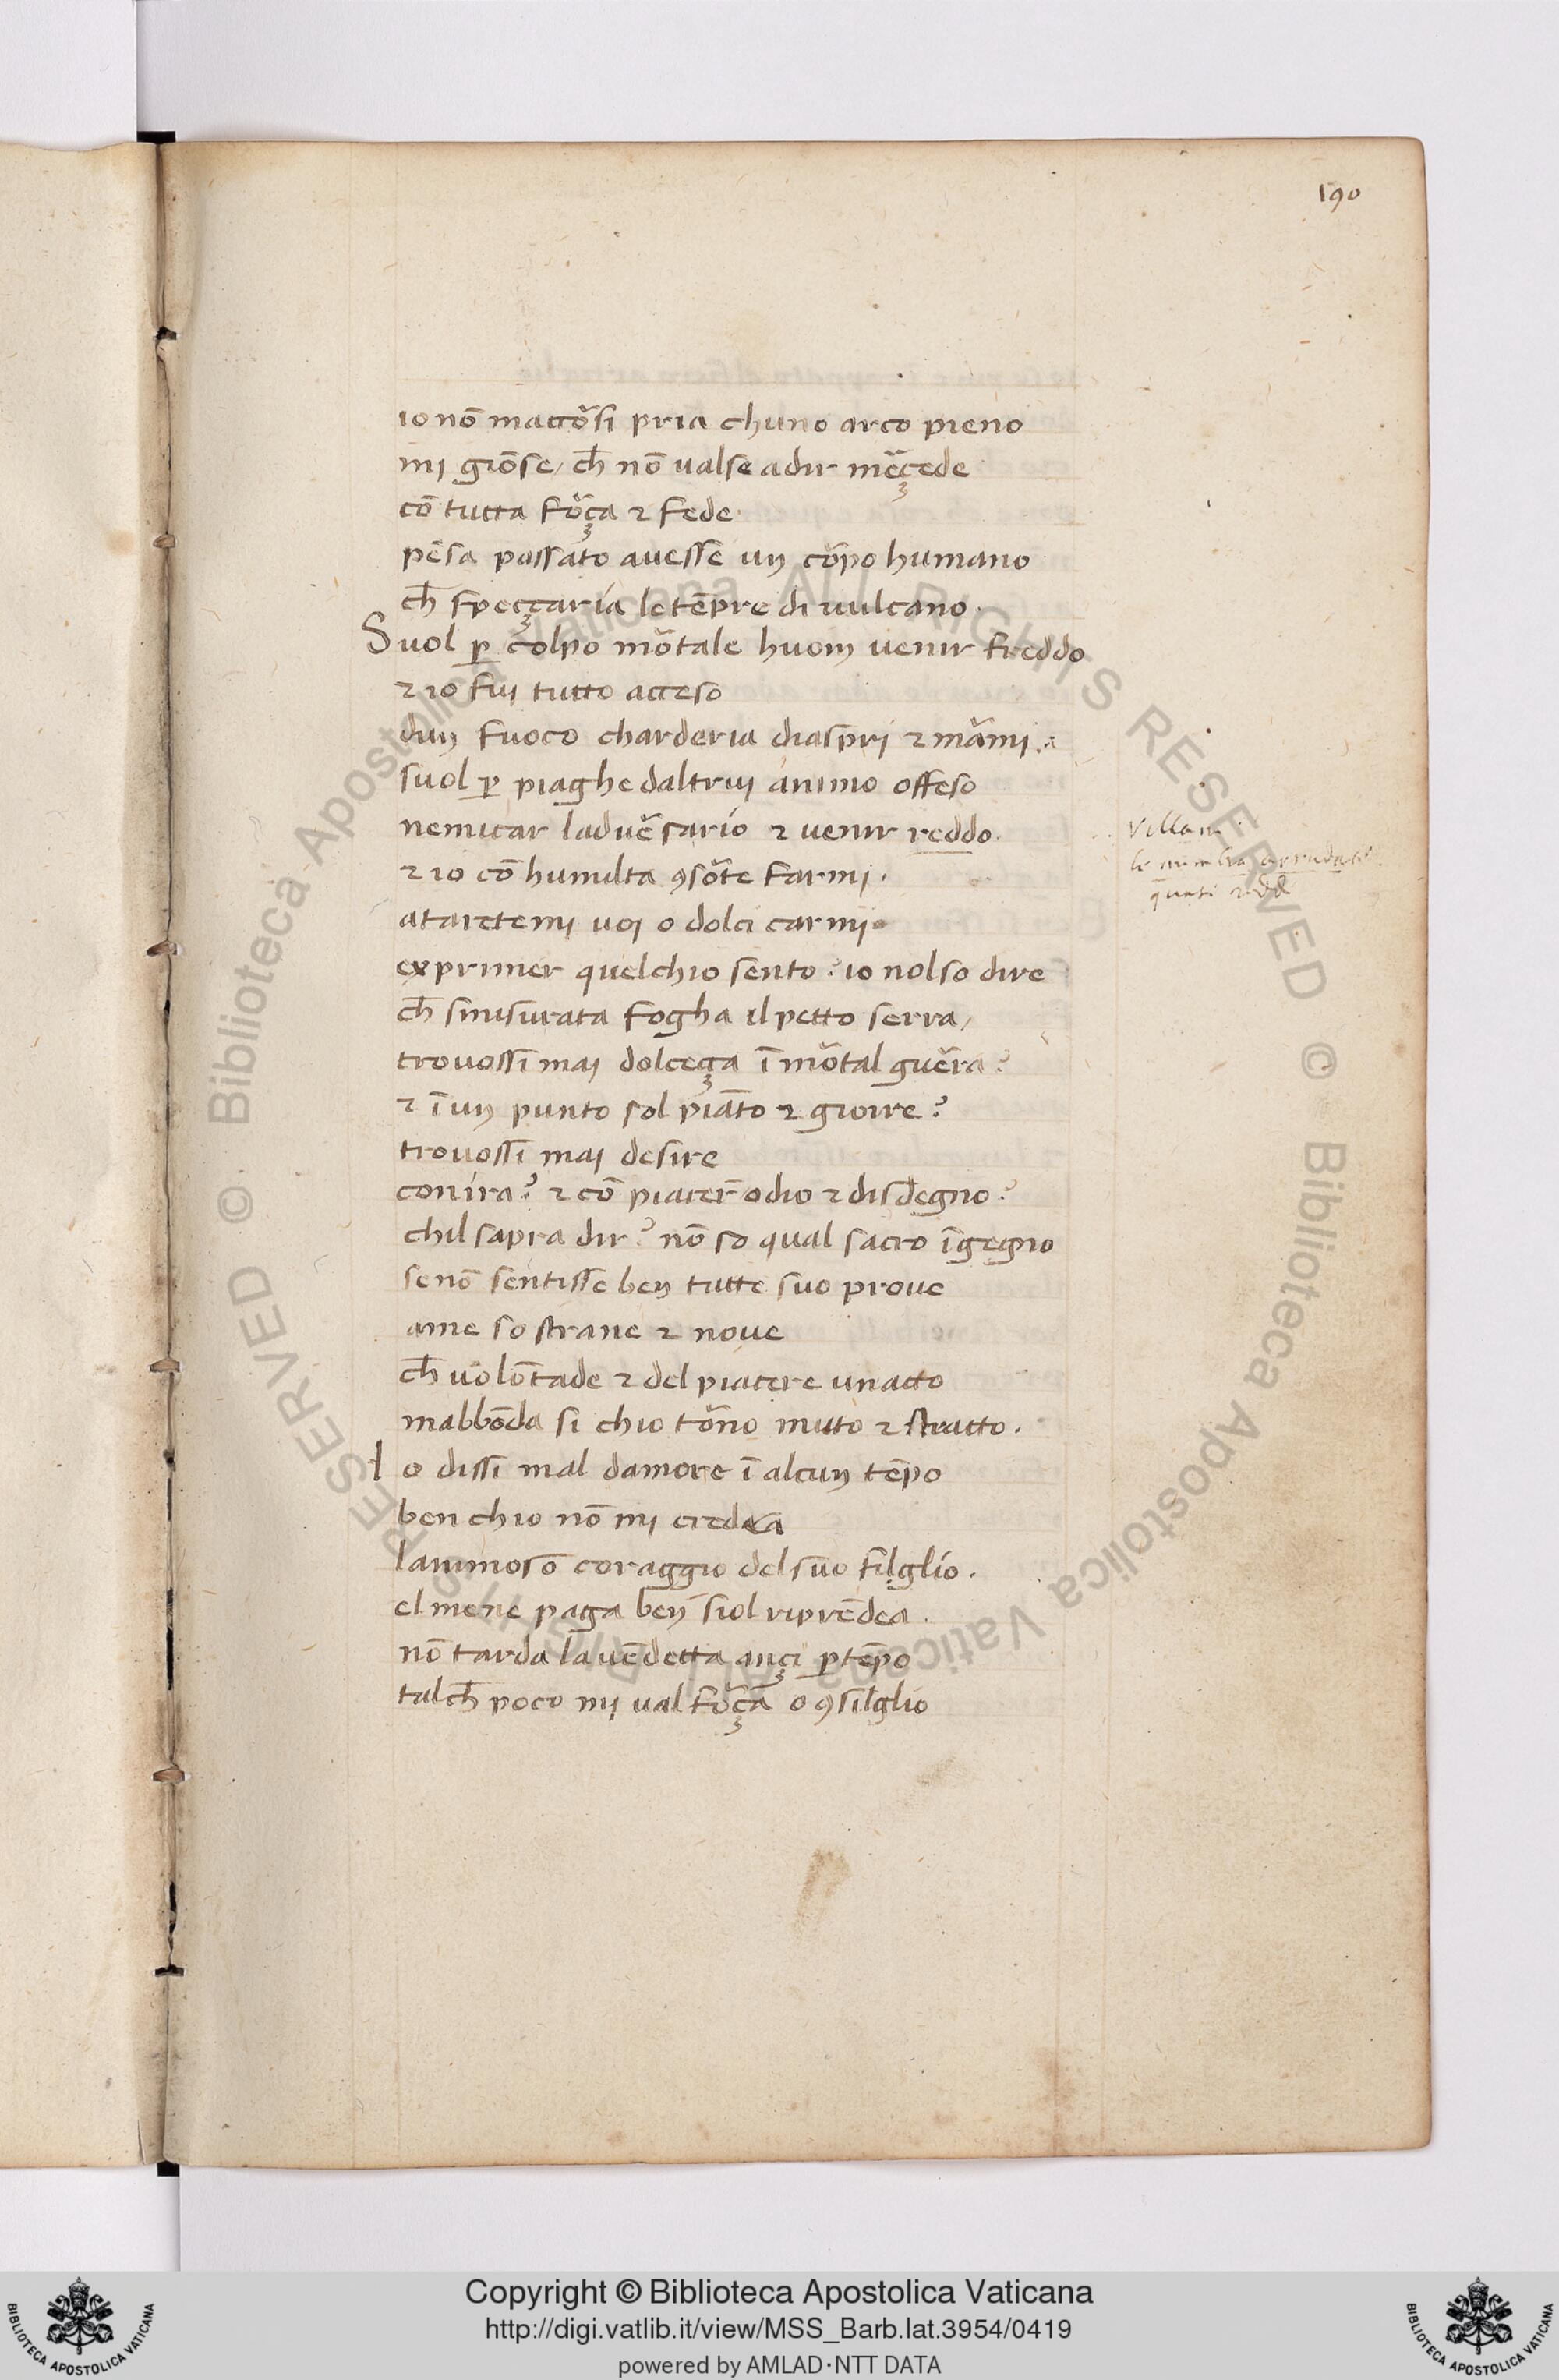 190
io nō maccõsi pria chuno arco pieno
mi giōse, ch̄ nō ualse a dir mẽçede
cō tutta fõça ⁊ fede.
pēsa passato auesse un cõpo humano
ch̄ speççaria le tēpre di uulcano.
Suol ꝑ colpo mõtale huom uenir freddo
⁊ io fui tutto acceso
dun fuoco charderia diaspri ⁊ mãmi.
suol ꝑ piaghe daltrui animo offeso
nemicar laduẽsario ⁊ uenir reddo.
⁊ io cō humilta ꝯsõte farmi.
atartemi uoi o dolci carmi
exprimer quelchio sento? io nol so dire
ch̄ smisurata fogha il petto serra,
trouossi mai dolceça ī mõtal guẽra?
⁊ ī un punto sol piāto ⁊ gioire?
trouossi mai desire
conira? ⁊ cō piacer odio ⁊ disdegno?
chil sapra dir? nō so qual sacro īgegno
se nō sentisse ben tutte suo proue
ame so strane ⁊ noue
ch̄ uolōtade ⁊ del piacere un atto
mabbōda si chio tõno muto ⁊ stratto.
Io dissi mal damore ī alcun tēpo
ben chio nō mi credea
lanimoso coraggio del suo filglio.
el mene paga ben siol riprēdea.
nō tarda la uēdetta ançi ꝑ tēpo
talch̄ poco mi ual fõça o ꝯsilglio
Villan.
Copyright © Biblioteca Apostolica Vaticana
http://digi.vatlib.it/view/MSS_Barb.lat.3954/0419
powered by AMLAD·NTT DATA
BIBLIOTECA APOSTOLICA VATICANA
BIBLIOTECA APOSTOLICA VATICANA
© Biblioteca Apostolica Vaticana ALL RIGHTS RESERVED © Biblioteca Apostolica Vaticana ALL RIGHTS RESERVED